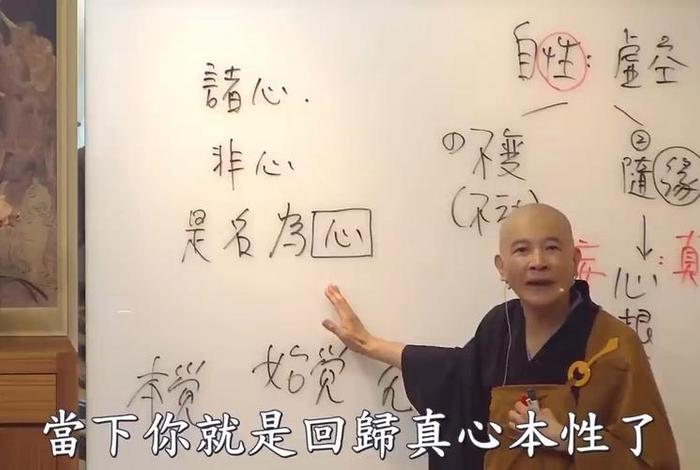 諸心.
非心
是名為心
自性:虛空
①不變
②隨緣
(不
妄:真
心想
本覚 始覚
當下你就是回歸真心本性了